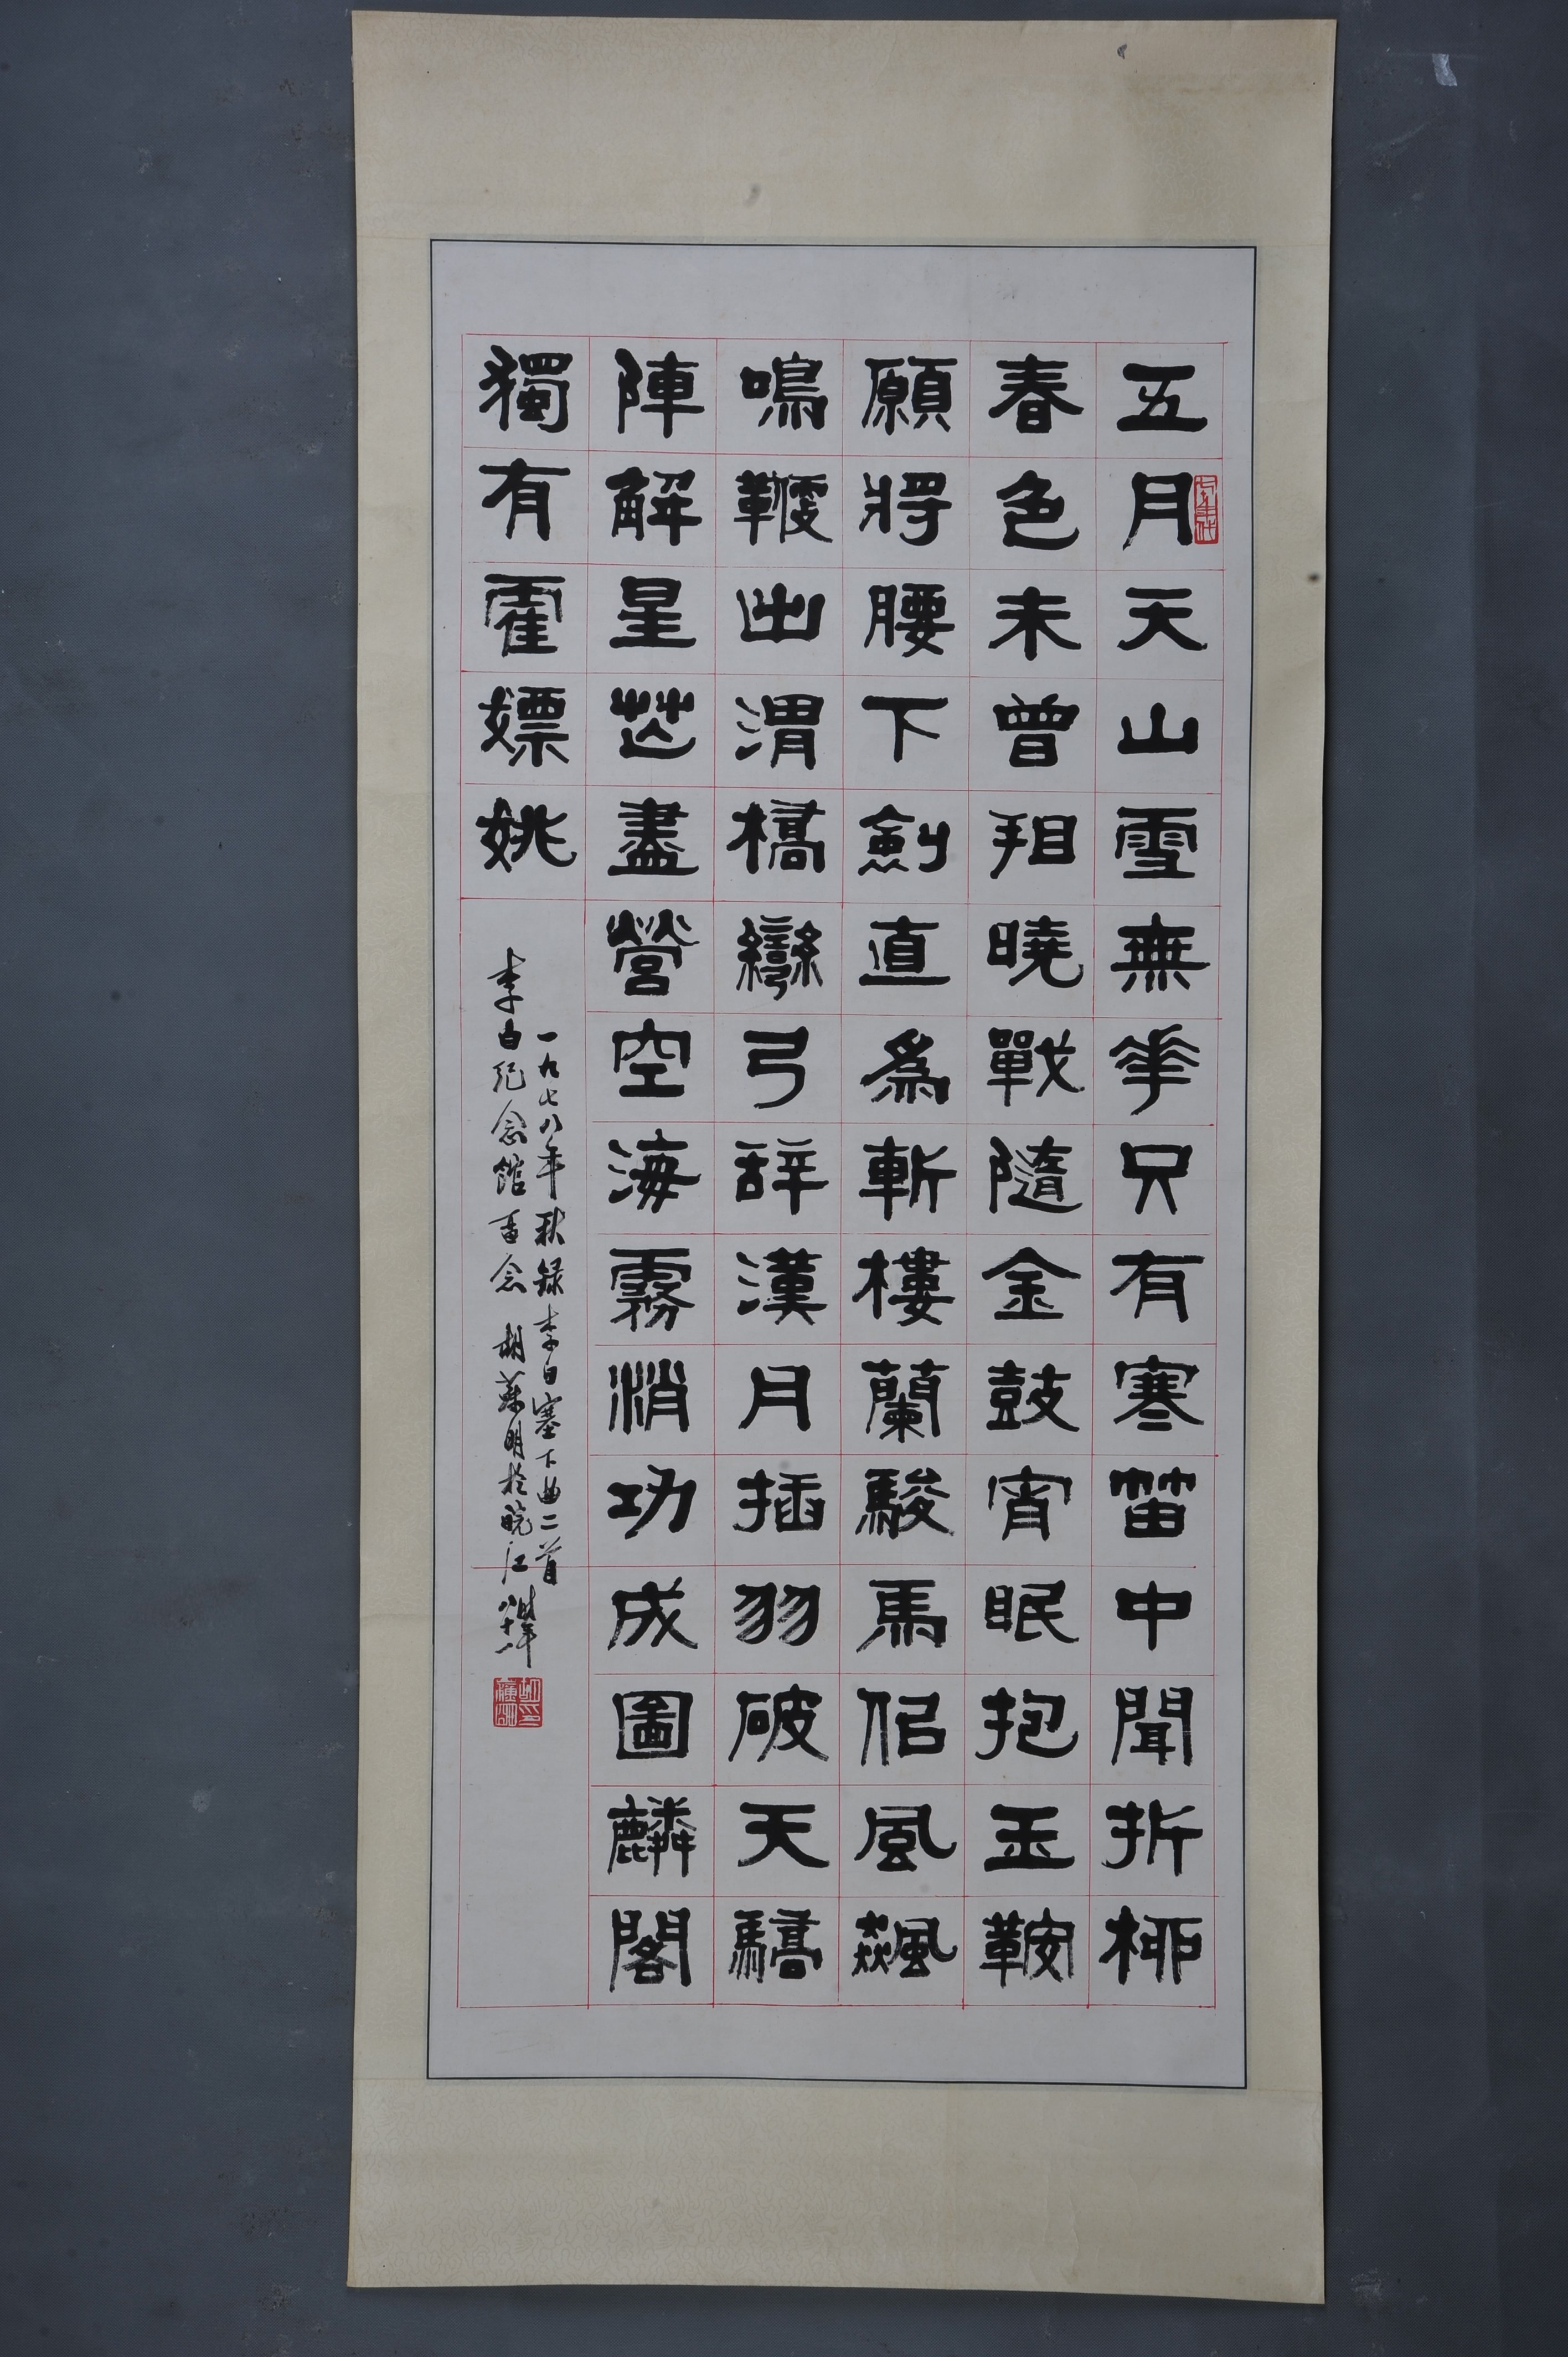 五月天山雪無華只有寒笛中聞折柳
春色未曾看曉戰隨金鼓宵眠抱玉鞍
願將腰下劍直為斬樓蘭駿馬似風飆
鳴鞭出渭橋彎弓辭漢月插羽破天驕
陣解星芒盡營空海霧消功成圖麟閣
獨有霍嫖姚
一九七八年秋録李白塞下曲二首
李白紀念館留念 胡蘇明於皖江 時年八十一